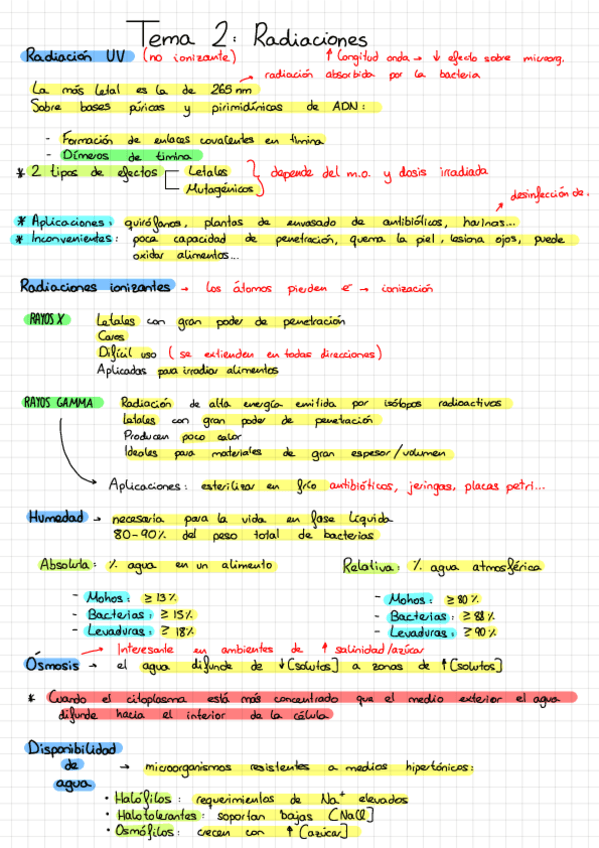 Tema 2: Radiaciones
Radiación UV (no ionizante) ↑ longitud onda → ↓ efecto sobre microorg.
radiación absorbida por la bacteria
La más letal es la de 265nm
Sobre bases púricas y pirimidínicas de ADN:
- Formación de enlaces covalentes en timina
- Dímeros de timina
* 2 tipos de efectos Letales
Mutagénicos
depende del m.o. y dosis irradiada
desinfección de.
* Aplicaciones: quirófanos, plantas de envasado de antibióticos, harinas...
* Inconvenientes: poca capacidad de penetración, quema la piel, lesiona ojos, puede
oxidar alimentos...
Radiaciones ionizantes → Los átomos pierden e⁻ → ionización
RAYOS X Letales con gran poder de penetración
Caros
Difícil uso (se extienden en todas direcciones)
Aplicadas para irradiar alimentos
RAYOS GAMMA Radiación de alta energía emitida por isótopos radioactivos
Letales con gran poder de penetración
Producen poco calor
Ideales para materiales de gran espesor/volumen
Aplicaciones: esterilizar en frío antibióticos, jeringas, placas petri...
Humedad → necesaria para la vida en fase líquida
80-90% del peso total de bacterias
Absoluta: % agua en un alimento
Relativa: % agua atmosférica
- Mohos: ≥ 13%
- Bacterias: ≥ 15%
- Levaduras: ≥ 18%
- Mohos: ≥ 80%
- Bacterias: ≥ 88%
- Levaduras: ≥ 90%
→ Interesante en ambientes de ↑ salinidad/azúcar
Ósmosis → el agua difunde de ↓ [solutos] a zonas de ↑ [solutos]
* Cuando el citoplasma está más concentrado que el medio exterior el agua
difunde hacia el interior de la célula
Disponibilidad
de
agua
→ microorganismos resistentes a medios hipertónicos:
• Halófilos: requerimientos de Na⁺ elevados
• Halotolerantes: soportan bajas [NaCl]
• Osmófilos: crecen con ↑ [azúcar]